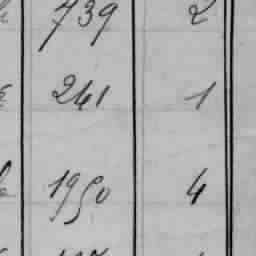 739 2
241 1
1950 4